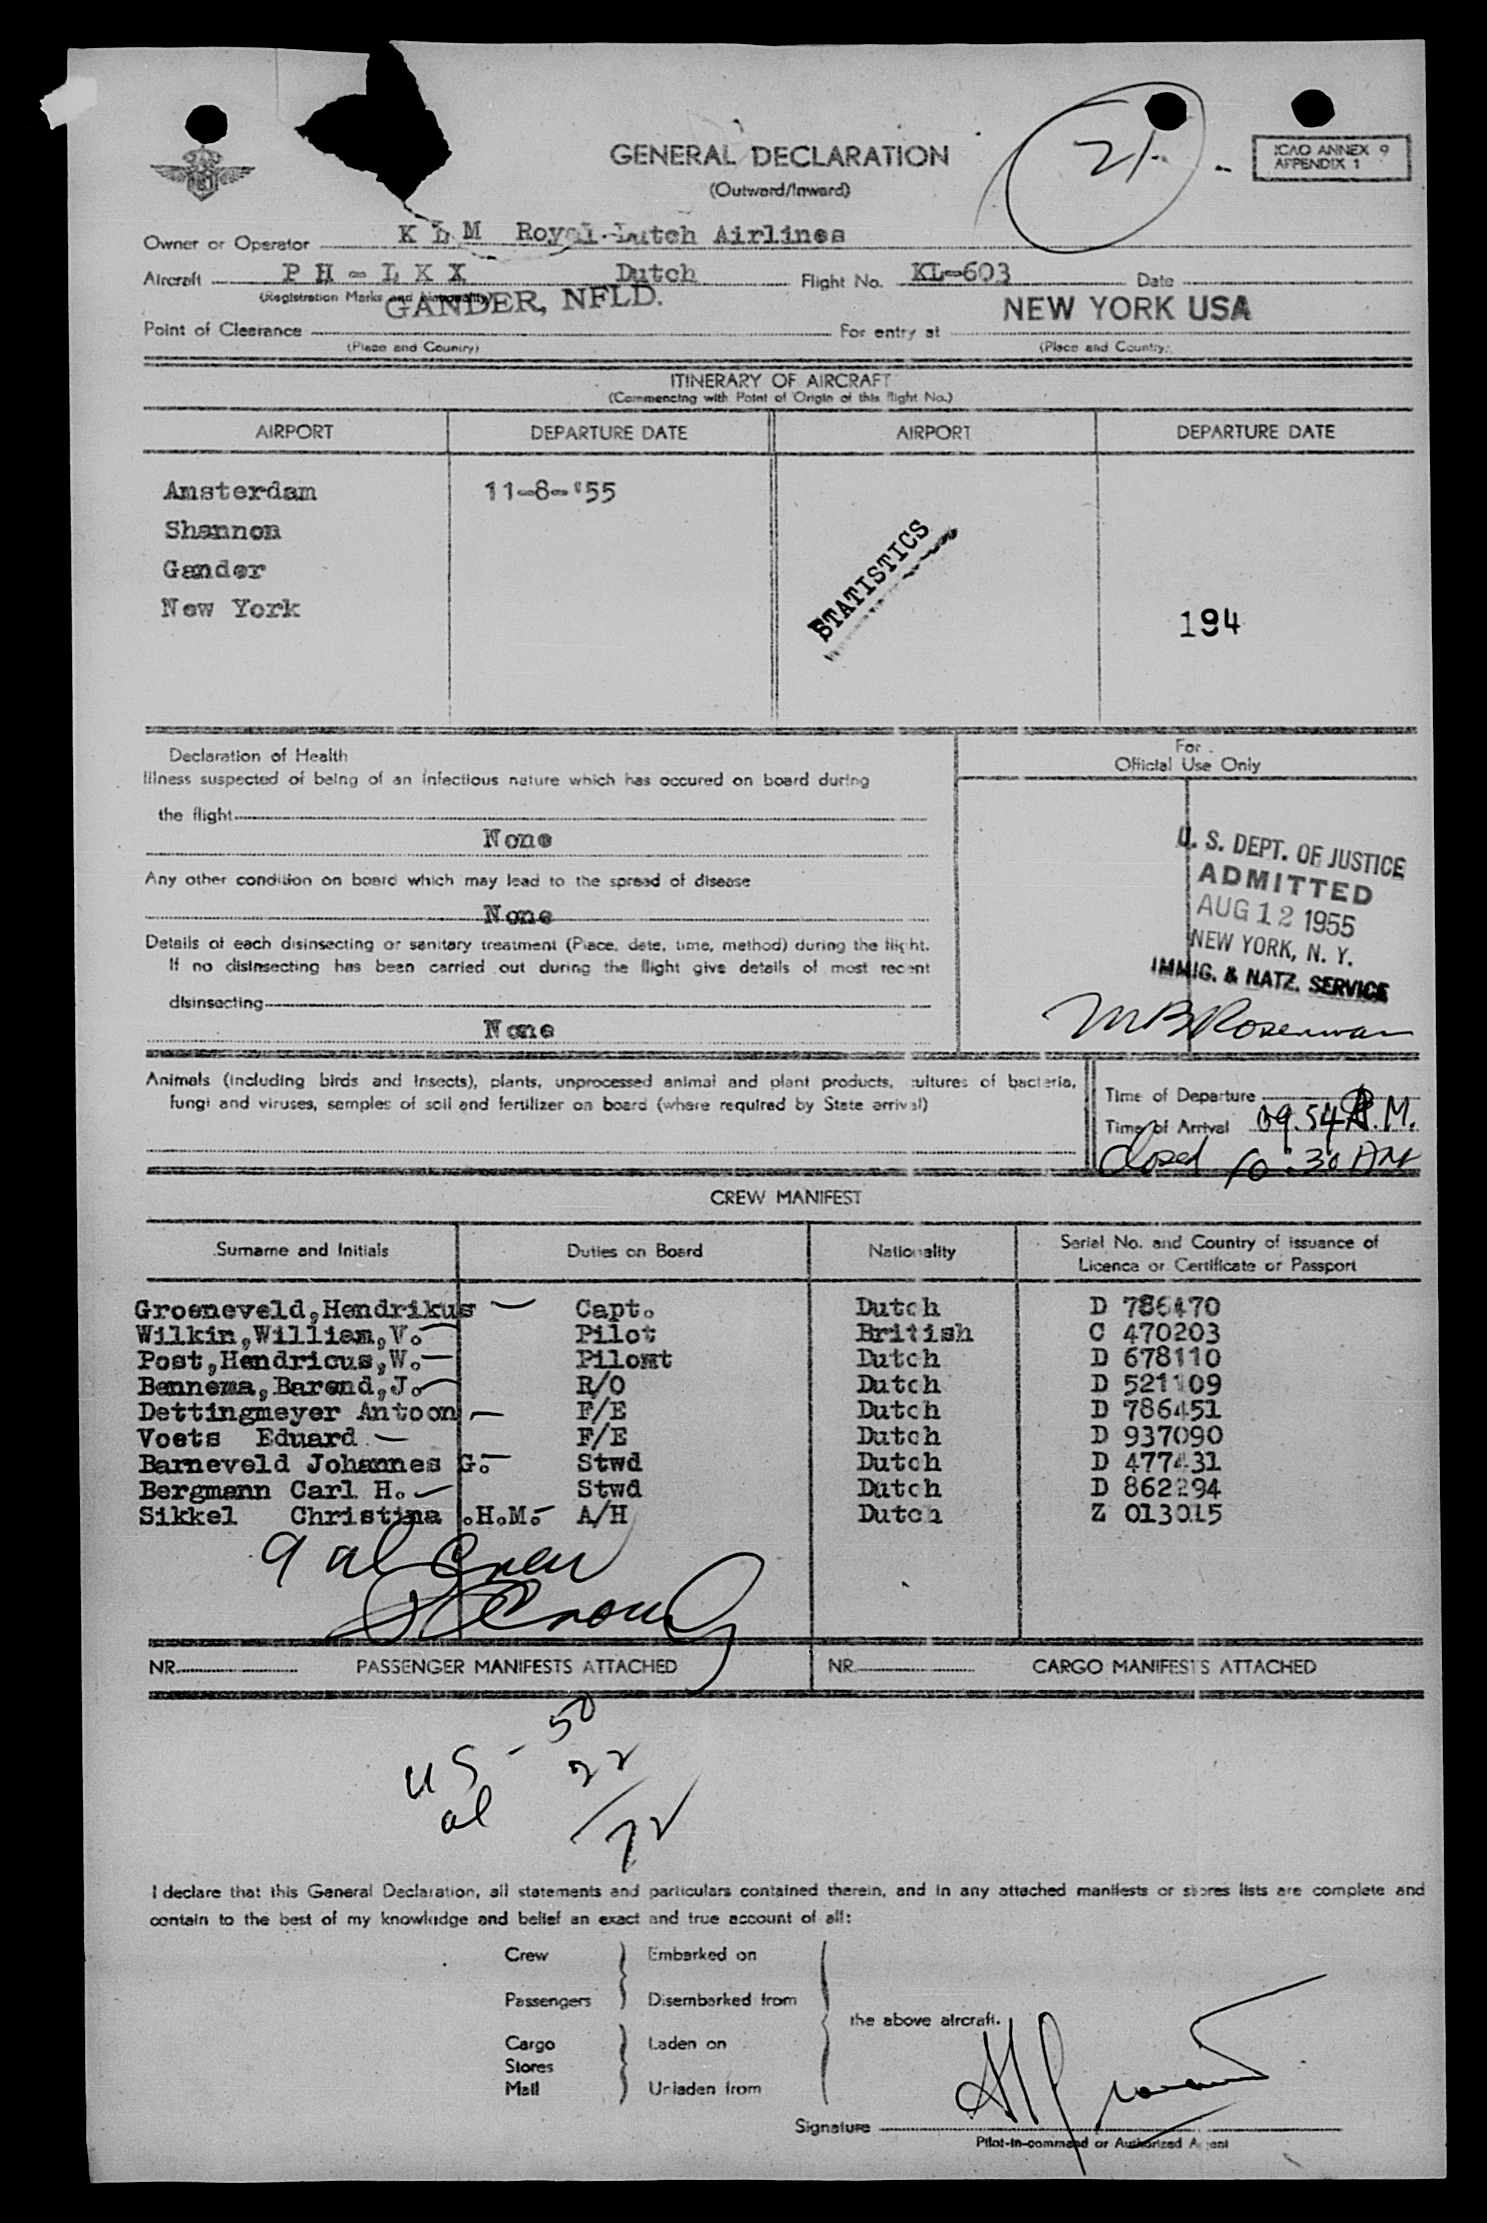 GENERAL DECLARATION
(Outward/Inward)
21.
ICAO ANNEX 9
APPENDIX 1
Owner or Operator K L M Royal Dutch Airlines
Aircraft P H - L K X Dutch Flight No. KL-603 Date
(Registration Marks and Nationality)
GANDER, NFLD. NEW YORK USA
Point of Clearance For entry at
(Place and Country) (Place and Country)
ITINERARY OF AIRCRAFT
(Commencing with Point of Origin of this flight No.)
AIRPORT DEPARTURE DATE AIRPORT DEPARTURE DATE
Amsterdam 11-8-'55
Shannon
Gander
New York
STATISTICS
194
Declaration of Health
Illness suspected of being of an infectious nature which has occured on board during
the flight
None
Any other condition on board which may lead to the spread of disease
None
Details of each disinsecting or sanitary treatment (Place, date, time, method) during the flight.
If no disinsecting has been carried out during the flight give details of most recent
disinsecting
None
For
Official Use Only
U. S. DEPT. OF JUSTICE
ADMITTED
AUG 12 1955
NEW YORK, N. Y.
IMMIG. & NATZ. SERVICE
Animals (including birds and insects), plants, unprocessed animal and plant products, cultures of bacteria,
fungi and viruses, samples of soil and fertilizer on board (where required by State arrival)
Time of Departure
Time of Arrival 09.54 A.M.
Closed 10:30 AM
CREW MANIFEST
Surname and Initials Duties on Board Nationality Serial No. and Country of issuance of
Licence or Certificate or Passport
Groeneveld,Hendrikus Capt. Dutch D 786470
Wilkin,William,V. Pilot British C 470203
Post,Hendricus,W. Pilomt Dutch D 678110
Bennema,Barend,J. R/O Dutch D 521109
Dettingmeyer Antoon F/E Dutch D 786451
Voets Eduard F/E Dutch D 937090
Barneveld Johannes G. Stwd Dutch D 477431
Bergmann Carl H. Stwd Dutch D 862294
Sikkel Christina .H.M. A/H Dutch Z 013015
9 al Crew
NR. PASSENGER MANIFESTS ATTACHED NR. CARGO MANIFESTS ATTACHED
US - 50
al 22
72
I declare that this General Declaration, all statements and particulars contained therein, and in any attached manifests or stores lists are complete and
contain to the best of my knowledge and belief an exact and true account of all:
Crew Embarked on
Passengers Disembarked from
the above aircraft.
Cargo Laden on
Stores
Mail Unladen from
Signature
Pilot-in-command or Authorized Agent